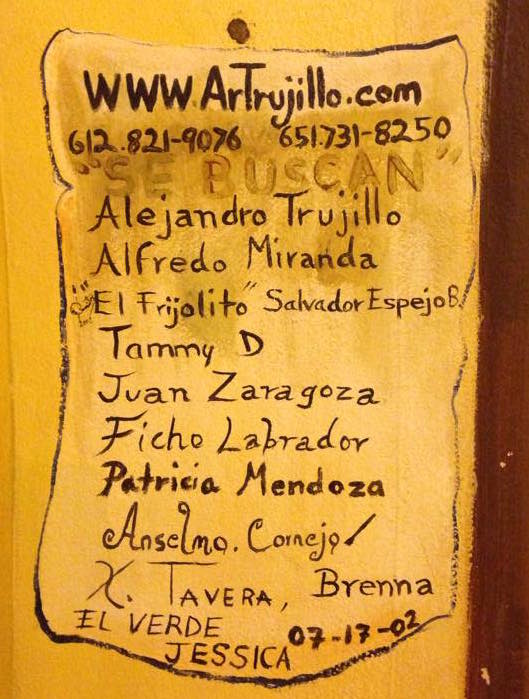 WWW.ArTrujillo.com
612.821-9076 651.731-8250
"SE BUSCAN"
Alejandro Trujillo
Alfredo Miranda
"El Frijolito" Salvador Espejo B.
Tammy D
Juan Zaragoza
Ficho Labrador
Patricia Mendoza
Anselmo. Cornejo
X. TAVERA, Brenna
EL VERDE
JESSICA 07-17-02